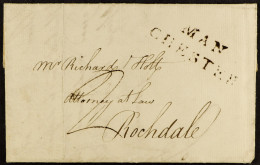 MAN
CHESTER
Mr Richard Holt
Attorney at Law
Rochdale